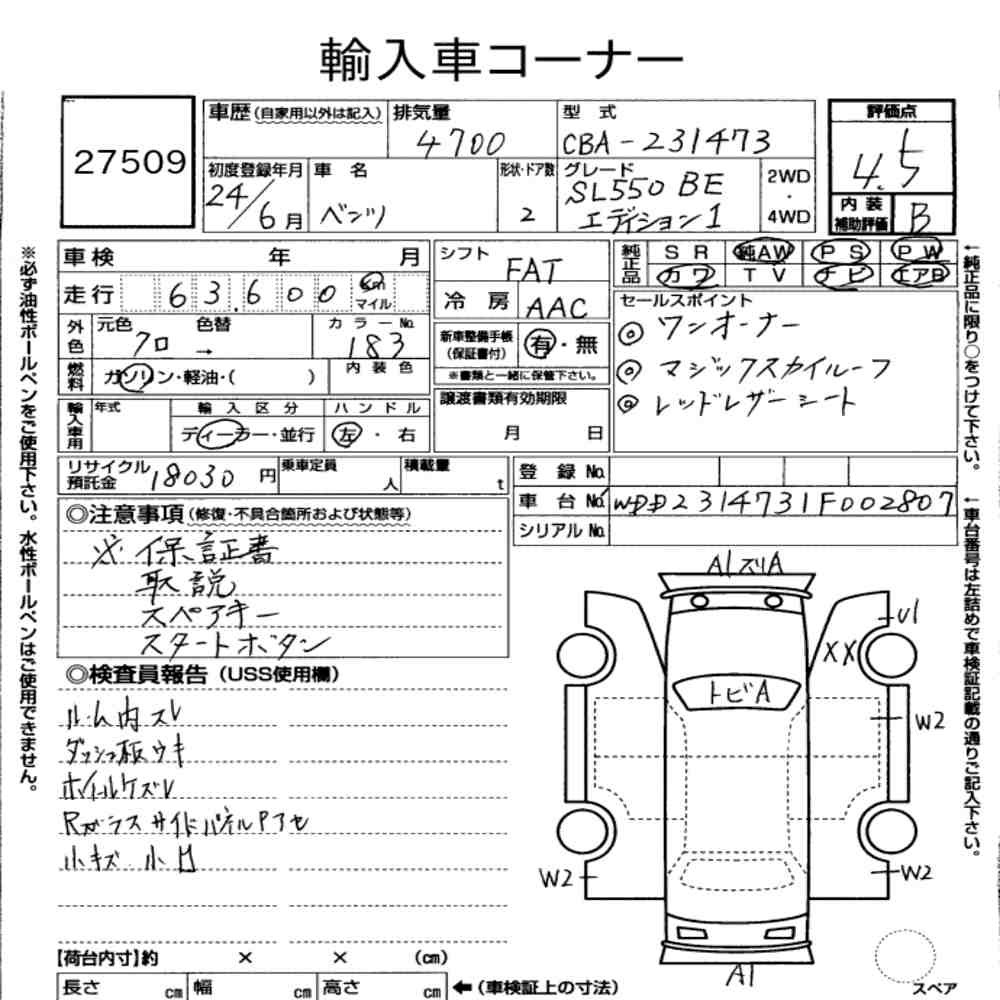 輸入車コーナー
27509
車歴(自家用以外は記入)
排気量
4700
型 式
CBA-231473
評価点
4.5
初度登録年月
24/6月
車 名
ベンツ
形状・ドア数
2
グレード
SL550 BE
エディション1
2WD
・
4WD
内 装
補助評価
B
車検 年 月
シフト
FAT
純正品
S R 純AW P S P W
カワ T V ナビ エアB
走行 63,600 Km
マイル
冷 房
AAC
セールスポイント
◎ ワンオーナー
◎ マジックスカイルーフ
◎ レッドレザーシート
外色
元色 色替
クロ →
カラーNo.
183
新車整備手帳
(保証書付)
有・無
※書類と一緒に保管下さい。
燃料
ガソリン・軽油・( )
内 装 色
輸入車用
年式
輸 入 区 分
ディーラー・並行
ハ ン ド ル
左 ・ 右
譲渡書類有効期限
月 日
リサイクル
預託金
18030 円
乗車定員
人
積載量
t
登 録 No.
車 台 No. WDD2314731F002807
シリアル No.
◎注意事項(修復・不具合箇所および状態等)
※ 保証書
取説
スペアキー
スタートボタン
◎検査員報告(USS使用欄)
ルーム内スレ
ダッシュ板ウキ
ホイルケズレ
Rガラスサイドパネルアセ
小キズ 小凹
A1ズリA
U1
XX
トビA
W2
W2
W2
A1
スペア
【荷台内寸】約 × × (cm)
長さ cm 幅 cm 高さ cm ←(車検証上の寸法)
※必ず油性ボールペンをご使用下さい。水性ボールペンはご使用できません。
←純正品に限り○をつけて下さい。
←車台番号は左詰めで車検証記載の通りご記入下さい。